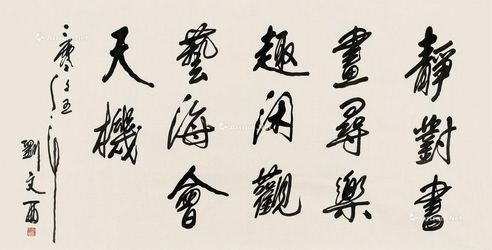 靜對書
畫尋樂
趣閑觀
藝海會
天機
劉文西